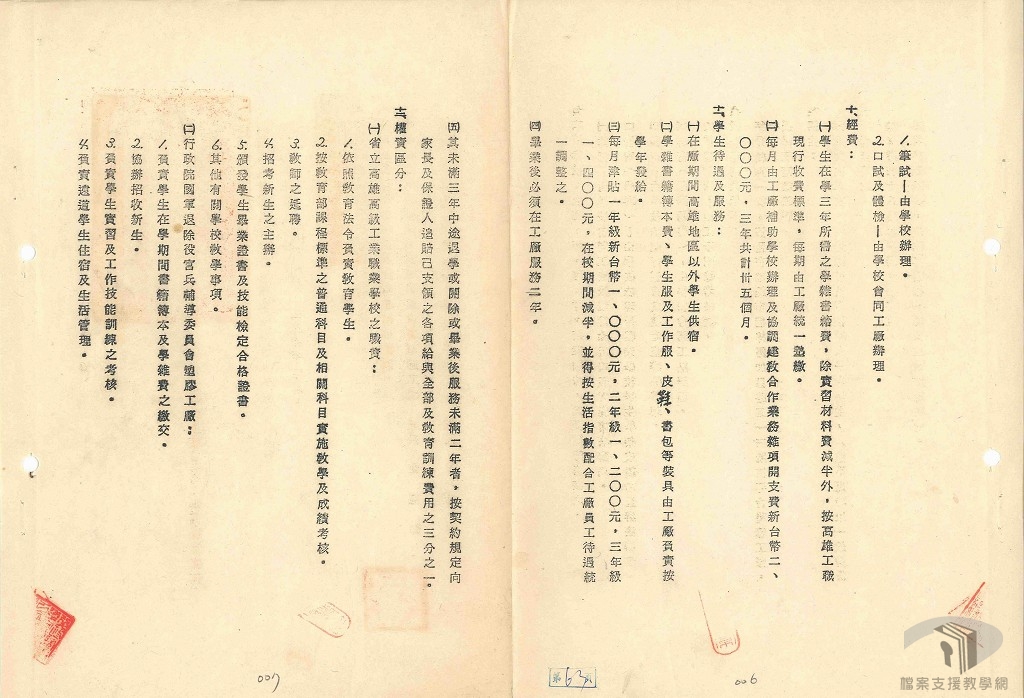 1.筆試－由學校辦理。
2.口試及體檢－由學校會同工廠辦理。
十、經費：
㈠學生在學三年所需之學雜書籍費，除實習材料費減半外，按高雄工職
現行收費標準，每期由工廠統一墊繳。
㈡每月由工廠補助學校辦理及協調建教合作業務雜項開支費新台幣二、
〇〇〇元，三年共計卅五個月。
十一、學生待遇及服務：
㈠在廠期間高雄地區以外學生供宿。
㈡學雜書籍簿本費、學生服及工作服、皮鞋、書包等裝具由工廠負責按
學年發給。
㈢每月津貼一年級新台幣一、〇〇〇元，二年級一、二〇〇元，三年級
一、四〇〇元，在校期間減半，並得按生活指數配合工廠員工待遇統
一調整之。
㈣畢業後必須在工廠服務二年。
㈤其未滿三年中途退學或開除或畢業後服務未滿二年者，按契約規定向
家長及保證人追賠已支領之各項給與全部及教育訓練費用之三分之一。
十二、權責區分：
㈠省立高雄高級工業職業學校之職責：
1.依照教育法令負責教育學生。
2.按教育部課程標準之普通科目及相關科目實施教學及成績考核。
3.教師之延聘。
4.招考新生之主辦。
5.頒發學生畢業證書及技能檢定合格證書。
6.其他有關學校教學事項。
㈡行政院國軍退除役官兵輔導委員會塑膠工廠：
1.負責學生在學期間書籍簿本及學雜費之繳交。
2.協辦招收新生。
3.負責學生實習及工作技能訓練之考核。
4.負責遠道學生住宿及生活管理。
006
007
檔案支援教學網